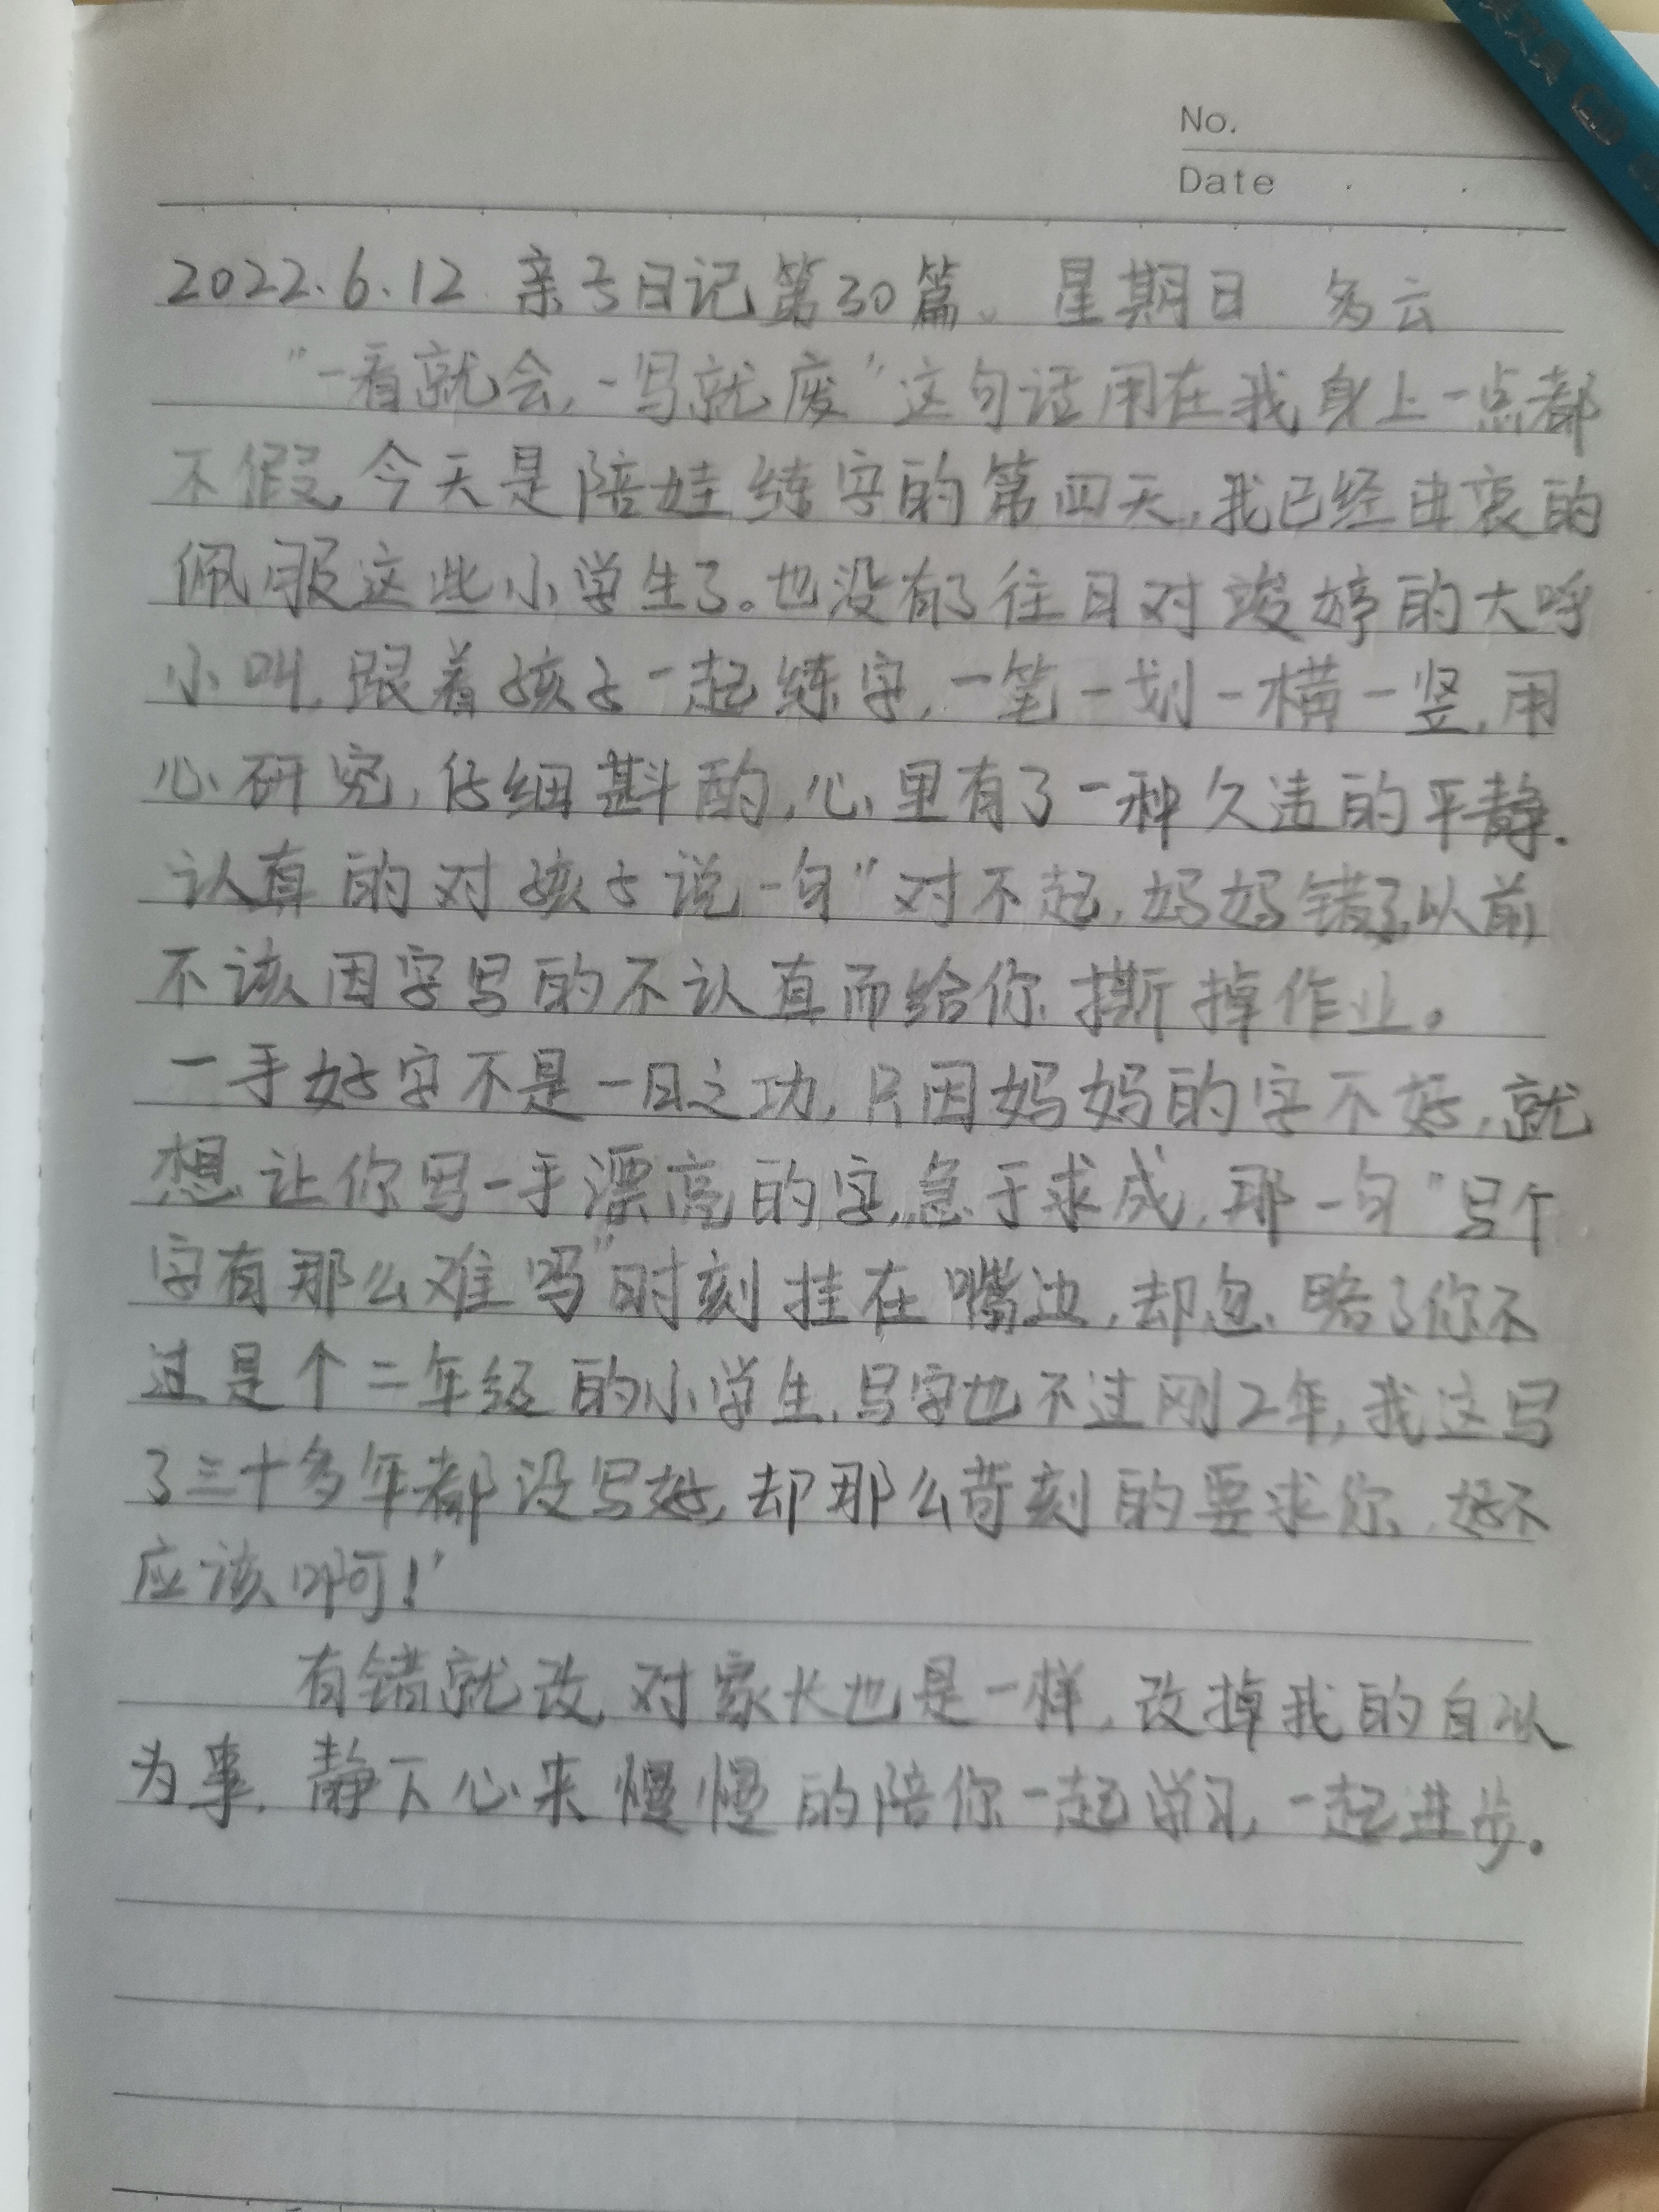 No.
Date
2022.6.12 亲子日记第30篇。 星期日 多云
“一看就会,一写就废”这句话用在我身上一点都
不假,今天是陪娃练字的第四天,我已经由衷的
佩服这些小学生了。也没有了往日对竣婷的大呼
小叫,跟着孩子一起练字,一笔一划一横一竖,用
心研究,仔细斟酌,心里有了一种久违的平静.
认真的对孩子说一句“对不起,妈妈错了,以前
不该因字写的不认真而给你撕掉作业。
一手好字不是一日之功,只因妈妈的字不好,就
想让你写一手漂亮的字,急于求成,那一句“写个
字有那么难吗”时刻挂在嘴边,却忽略了你不
过是个二年级的小学生,写字也不过刚2年,我这写
了三十多年都没写好,却那么苛刻的要求你,好不
应该啊!”
有错就改,对家长也是一样,改掉我的自以
为事,静下心来慢慢的陪你一起学习,一起进步。